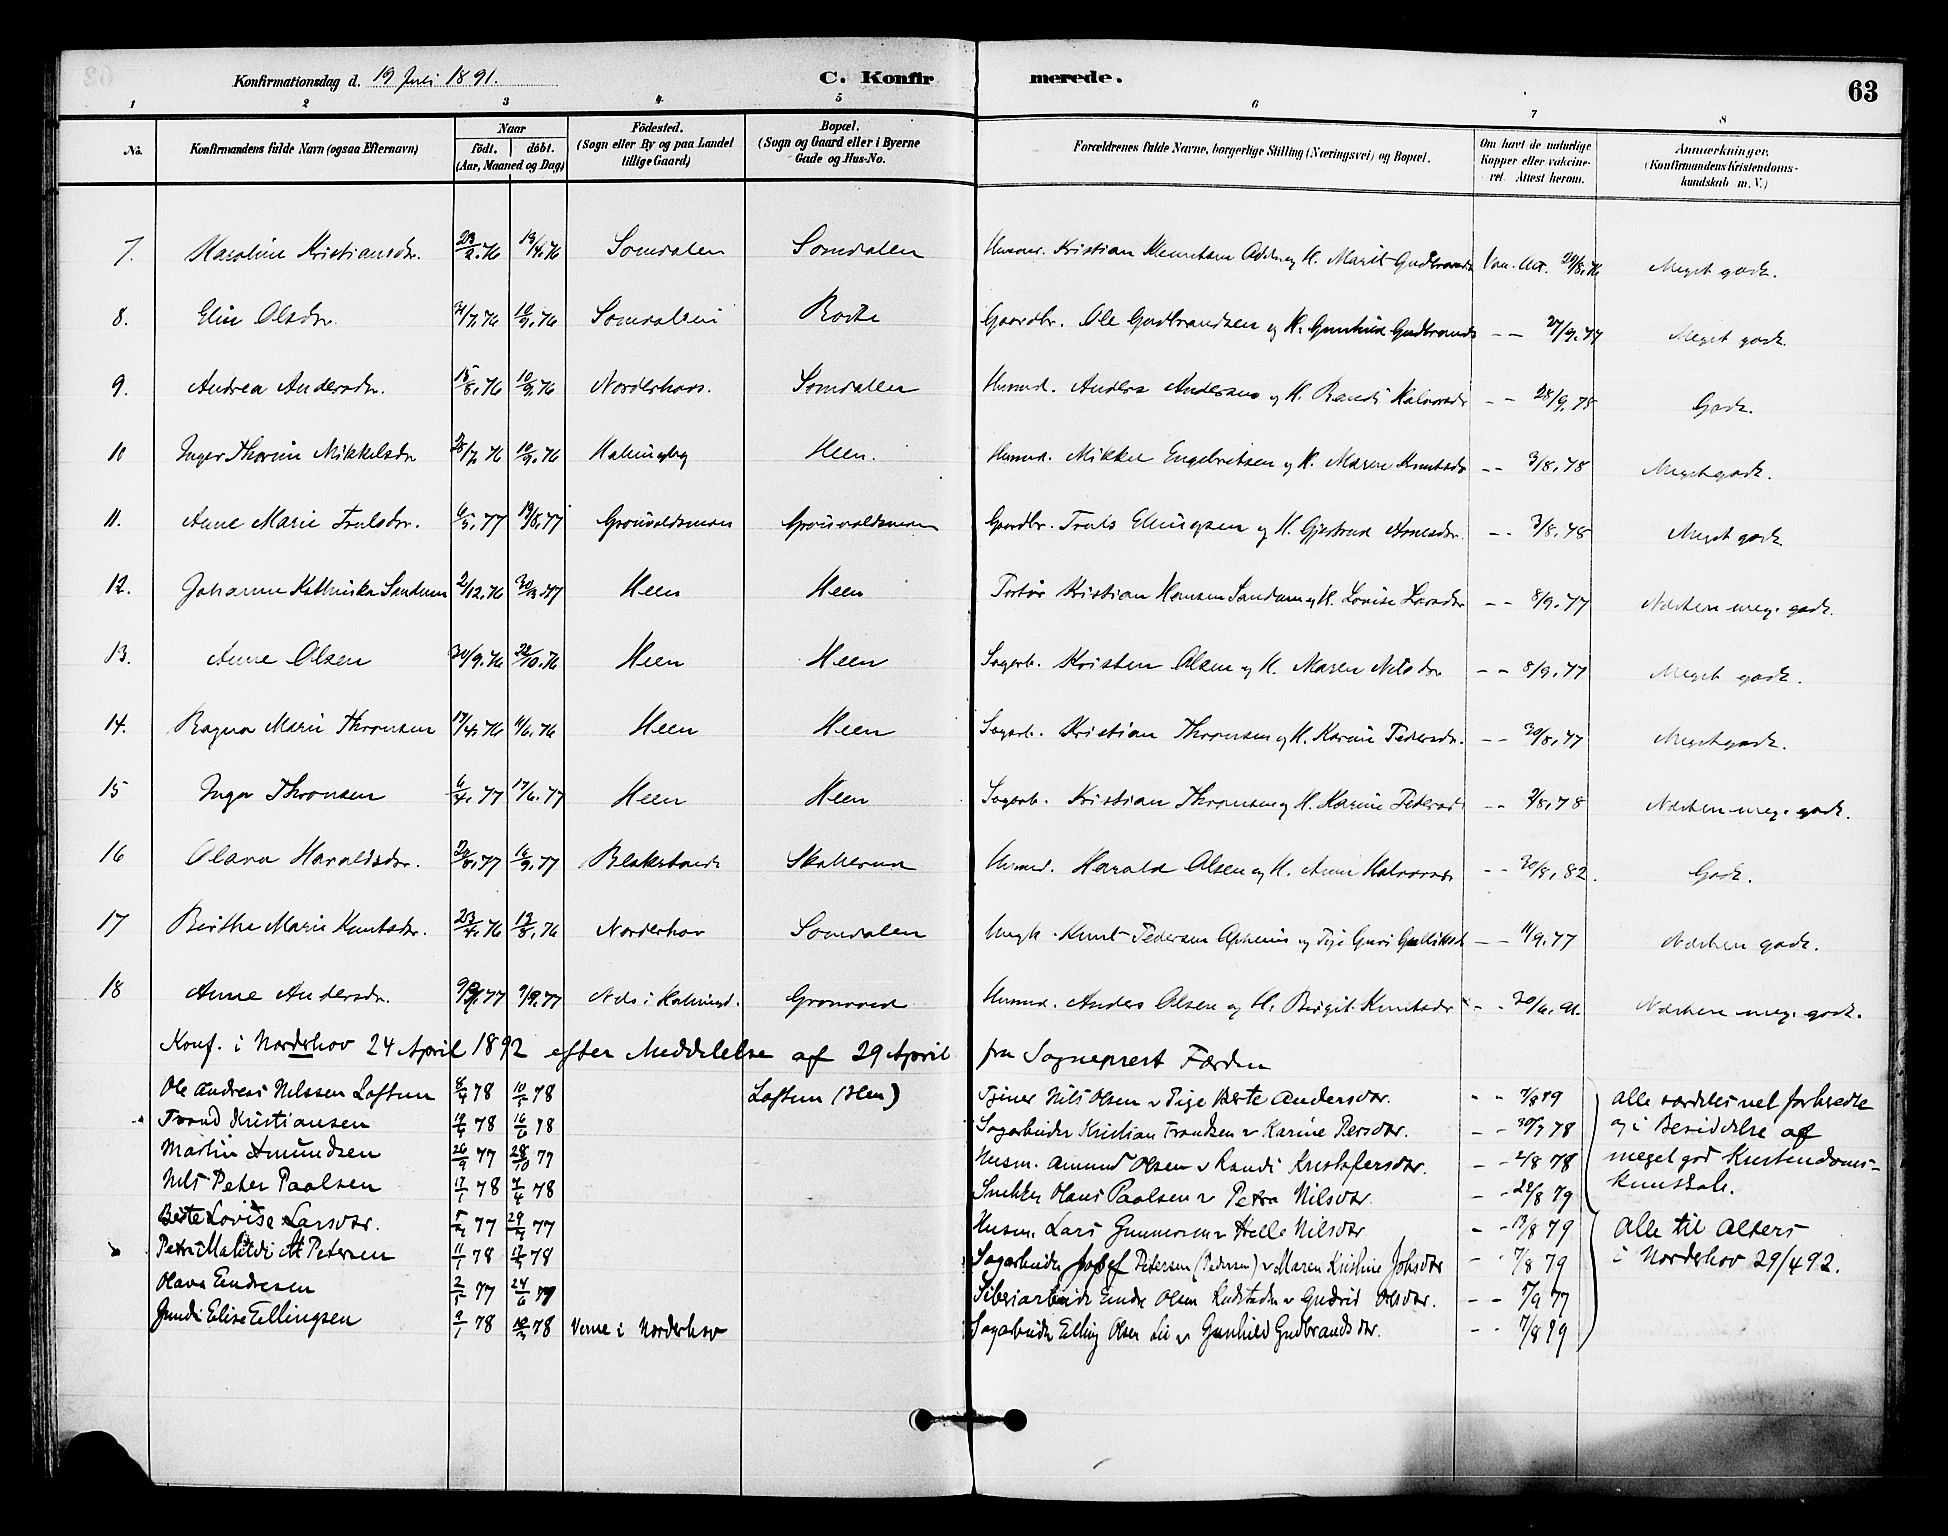 Konfirmationsdag d. 19 Juli 1891. C. Konfir merede. 63
1 2 3 4 5 6 7 8
No. Konfirmandens fulde Navn (ogsaa Efternavn) Naar födt. döbt. (Aar, Maaned og Dag) Födested. (Sogn eller By og paa Landet tillige Gaard) Bopæl. (Sogn og Gaard eller i Byerne Gade og Hus-No. Forældrenes fulde Navne, borgerlige Stilling (Næringsvei) og Bopæl. Om havt de naturlige Kopper eller vakcineret. Attest herom. Anmærkninger, (Konfirmandens Kristendomskundskab m. V.)
7. Karoline Kristiansdr. 23/2.76 13/4.76 Somdalen Somdalen Kristian og H. Marit Gudbrandsd Vac. Att. 29/8.76 Meget godt.
8. Elin Olsdr. 31/7.76 10/9.76 Somdalen Gaardbr. Ole Gudbrandsen og H. Gunhild Gudbrandsd - - 27/9.77 Meget godt.
9. Andrea Andersdr. 15/8.76 10/9.76 Norderhov. Somdalen Husmd. Anders Andersen og H. Randi Halvorsdr - - 28/9.78 Godt.
10 Inger Thorine Mikkelsdr 28/7.76 10/9.76 Heen. Husmd. Mikkel Engebretsen og H. Maren Knutsdr - - 3/8.78 Meget godt.
11. Anne Marie Trulsdr. 6/5.77 19/8.77 Gaardbr. Truls Ellingsen og H. Gjertrud - - 3/8.78 Meget godt.
12. Johanne Kathinka Sandum 2/12.76 Heen Heen Kristian Hansen Sandum og H. Lovise Larsdr - - 8/9.77 Næsten meg. godt.
13. Anne Olsen 30/9.76 22/10.76 Heen Heen Sagarb. Kristen Olsen og H. Maren Nilsdr - - 8/9.77 Meget godt.
14. Ragna Marie Thronsen 17/4.76 11/6.76 Heen Heen Sagarb. Kristian Thronsen og H. Karine Pedersdr. - - 30/8.77 Meget godt.
15 Inga Thronsen 6/4.77 17/6.77 Heen Heen Sagarb. Kristian Thronsen og H. Karine Pedersd - - 2/8.78 Næsten meg. godt.
16 Olava Haraldsdr. 16/9.77 Husmd. Harald Olsen og H. Anne Halvorsdr - - 30/8.82. Godt.
17 Birthe Marie Knutsdr. 23/4.76 13/8.76 Norderhov Somdalen Ungk. Knut Pedersen og Pige Guri Gulliksd - - 11/9.77 Næsten godt.
18 Anne Andersdr. 9/9.77 Grønvold Husmd. Anders Olsen og H. Birgit Knutsdr - - Næsten meg. godt.
Konf. i Norderhov 24 April 1892 efter Meddelelse af 29 April fra Sogneprest Færden
Ole Andreas Nilssen Loftum 8/4 78 10/5 78 Loftum (Hen) Tjener Nils Olsen & Pige Berte Andersdtr. - - 7/8 79 alle særdeles vel forberedte
Trond Kristiansen 16/6 78 Sagarbeider Kristian Trondsen & Karine Persdtr. - - 30/7 78 og i Besiddelse af
Martin Amundsen 26/9 77 28/10 77 Husm. Amund Olsen & Randi Kristofersdtr. - - 2/8 78 meget god Kristendoms-
Nils Peter Paalsen 17/1 78 7/4 78 Snekker Olaus Paalsen & Petra Nilsdtr. - - 22/8 79 kundskab.
Berte Lovise Larsdtr. 77 77 Husm. Lars Gunnersen & Helle Nilsdtr - - 13/8 79 alle til Alters
Petra Matilde M Petersen 11/1 78 78 Sagarbeider Josef Petersen (Pedersen) & Maren Kristine Johsdtr - - 7/8 79 i Norderhov 29/4 92.
Olava Endresen 2/5 77 24/6 77 Sliberiarbeider Endre Olsen & Gudrid Olsdtr. - - 5/9 77
Gunda Elise Ellingsen 9/1 78 78 Verne i Norderhov Sagarbeider Elling Olsen Lie & Gunhild Gudbrandsdtr. - - 7/8 79